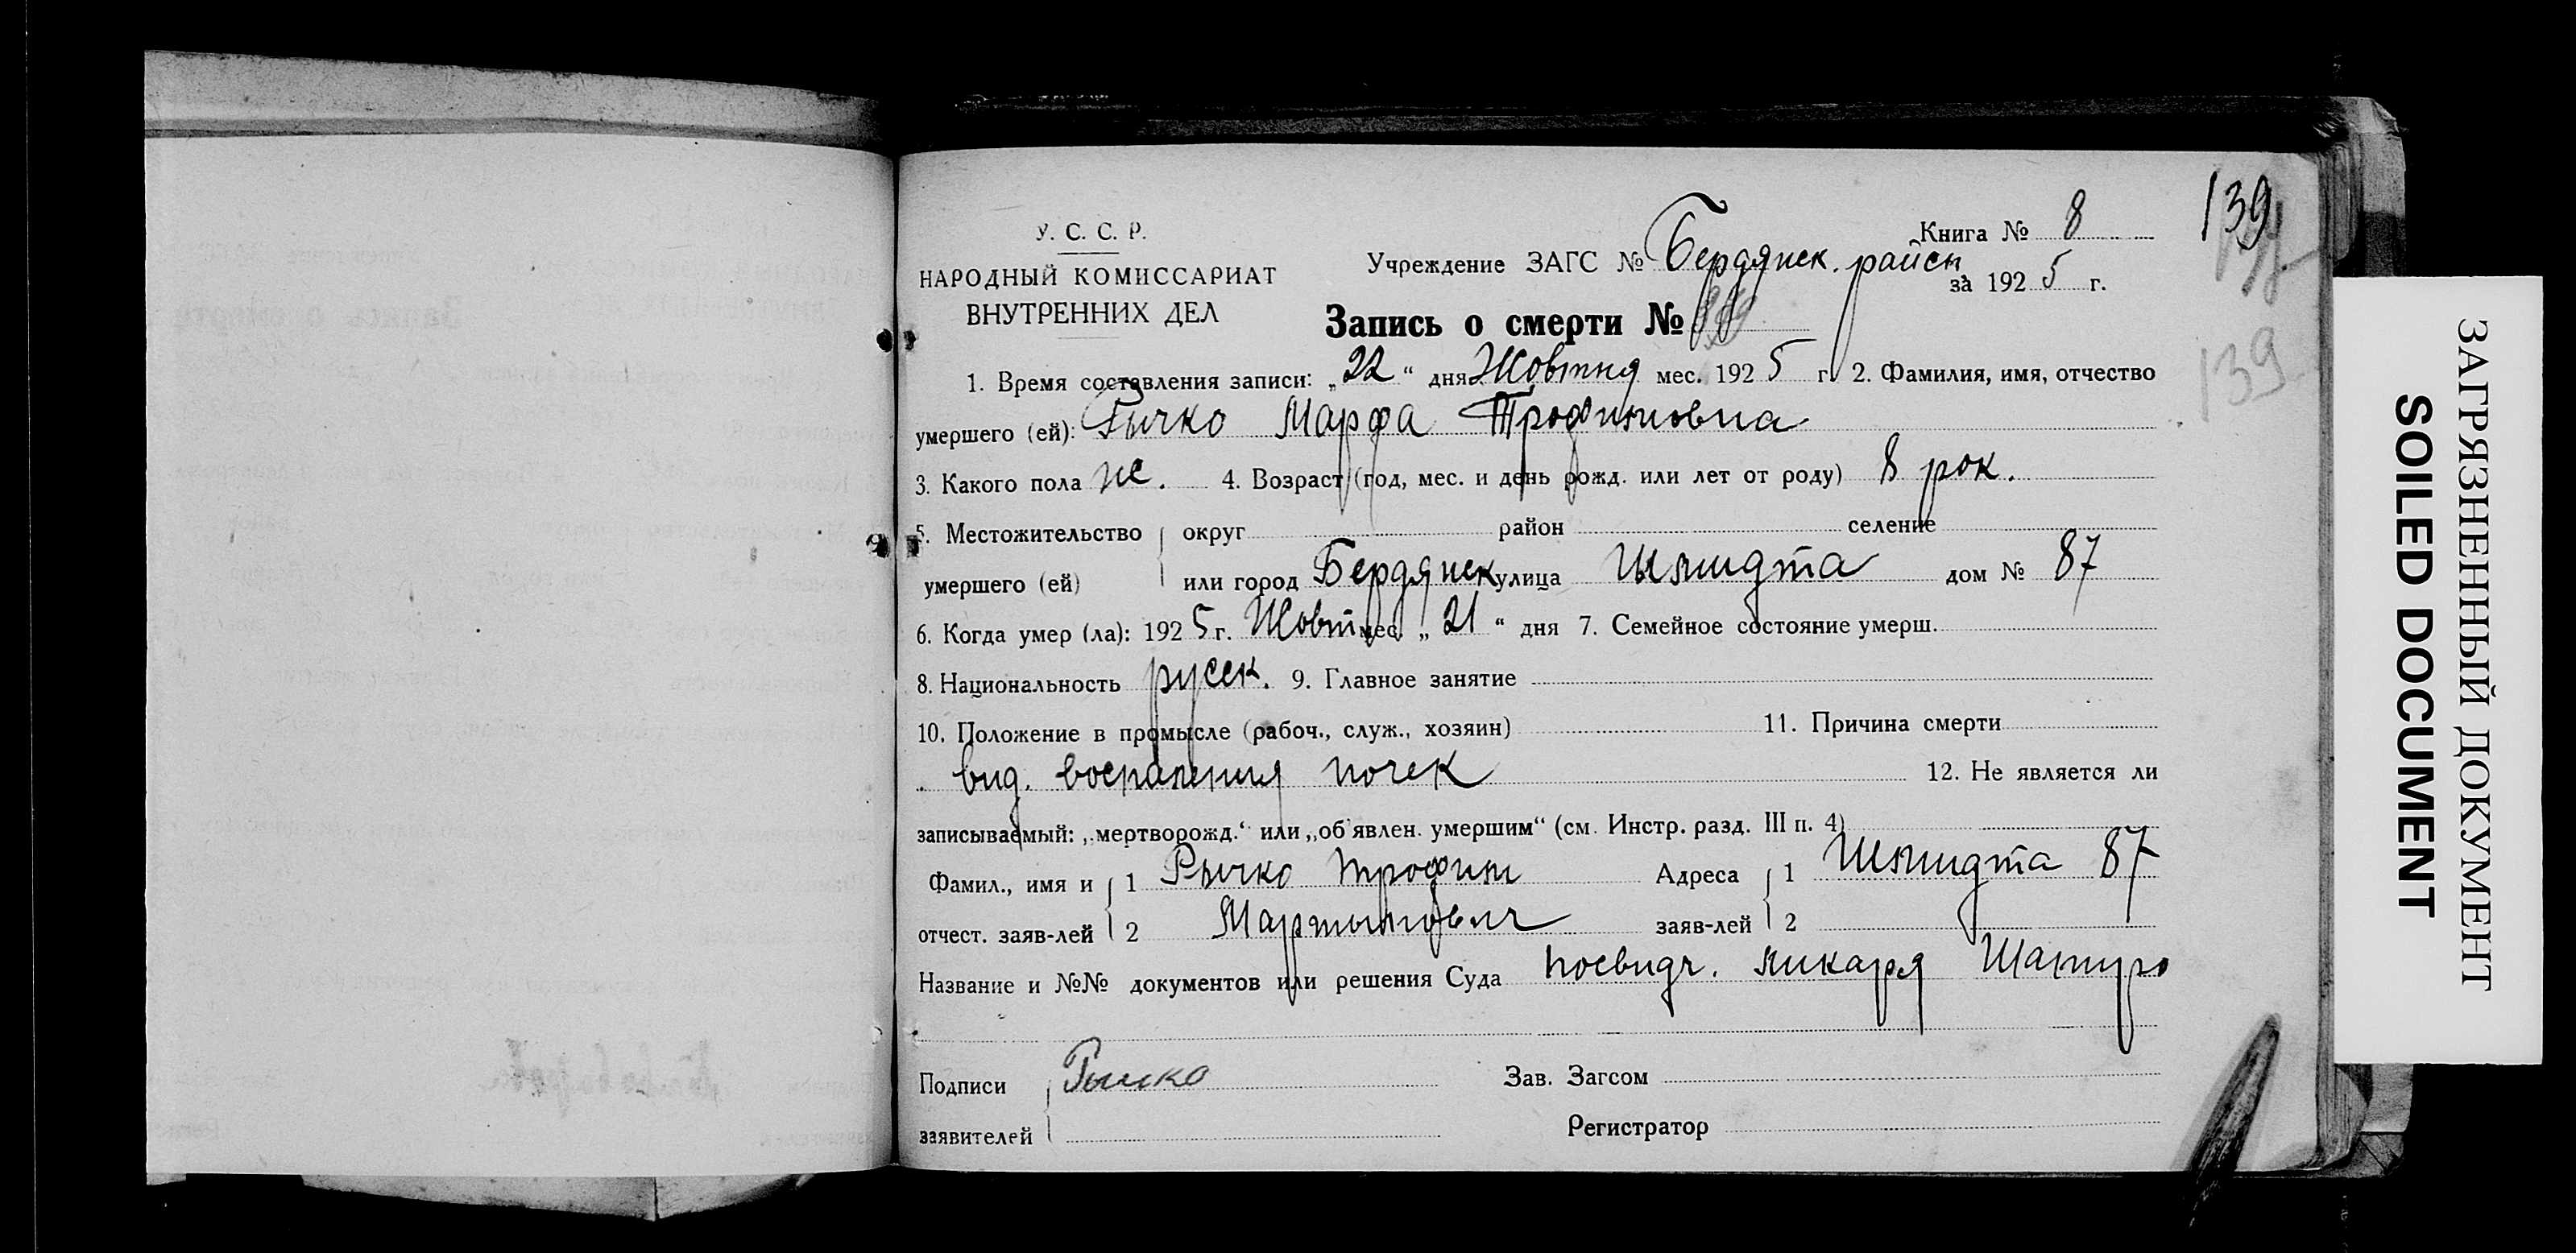 139
Книга № 8
У. С. С. Р.
НАРОДНЫЙ КОМИССАРИАТ
ВНУТРЕННИХ ДЕЛ
Учреждение ЗАГС № Бердянск. район,
за 1925 г.
Запись о смерти №
139
1. Время составления записи: „22“ дня Жовтня мес. 1925 г. 2. Фамилия, имя, отчество
умершего (ей): Рычко Марфа Трофимовна
3. Какого пола ж. 4. Возраст (год, мес. и день рожд. или лет от роду) 8 рок.
5. Местожительство округ район селение
умершего (ей) или город Бердянск улица Шмидта дом № 87
6. Когда умер (ла): 1925 г. Жовт мес. „21“ дня 7. Семейное состояние умерш.
8. Национальность русск. 9. Главное занятие
10. Положение в промысле (рабоч., служ., хозяин) 11. Причина смерти
від. воспаления почек 12. Не является ли
записываемый: „мертворожд.“ или „об'явлен. умершим“ (см. Инстр. разд. III п. 4)
Фамил., имя и 1 Рычко Трофим Адреса 1 Шмидта 87
отчест. заяв-лей 2 Мартынович заяв-лей 2
Название и №№ документов или решения Суда посвидч. ликаря
Подписи Рычко Зав. Загсом
заявителей Регистратор
ЗАГРЯЗНЕННЫЙ ДОКУМЕНТ
SOILED DOCUMENT